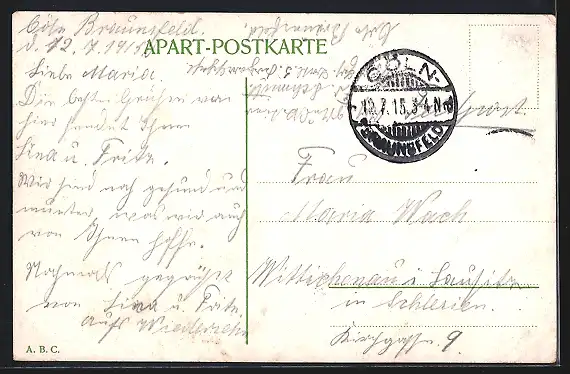 Cöln Braunsfeld.
d. 12.7.1915
APART-POSTKARTE
Liebe Maria.
Die besten Grüßen von
hier sendet Ihnen
Lina u. Fritz.
Wir sind noch gesund und
munter, was wir auch
von Ihnen hoffe.
Nochmals gegrüßt
von Lina u. Fritz.
aufs Wiedersehn
A. B. C.
CÖLN-
12.7.15. 3-4 N
BRAUNSFELD
Feldpost.
Frau
Maria Wach
Wittichenau i. Lausitz
in Schlesien.
Kirchgasse 9